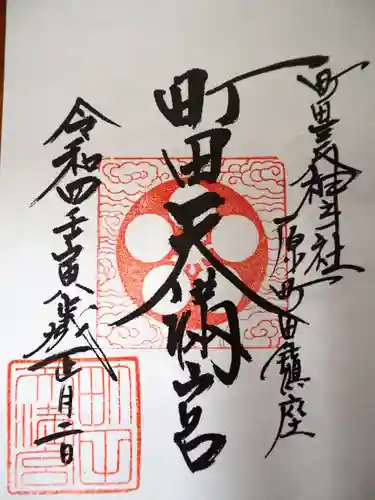 町田豊受神社
原町田寶座
町田天満宮
令和四壬寅歳正月二日